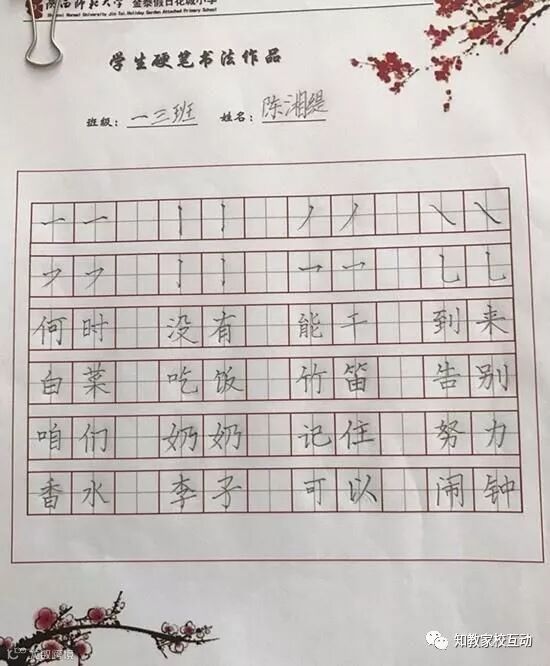 陕西师范大学 金泰假日花城小学
Shaanxi Normal University Jin Tai Holiday Garden Attached Primary School
学生硬笔书法作品
班级：一三班 姓名：陈湘缇
一 一 丨 丨 丿 丿 ㇏ ㇏
丨 丨 乛 乛 乚 乚
何时 没有 能干 到来
白菜 吃饭 竹笛 告别
咱们 奶奶 记住 努力
香水 李子 可以 闹钟
知教家校互动